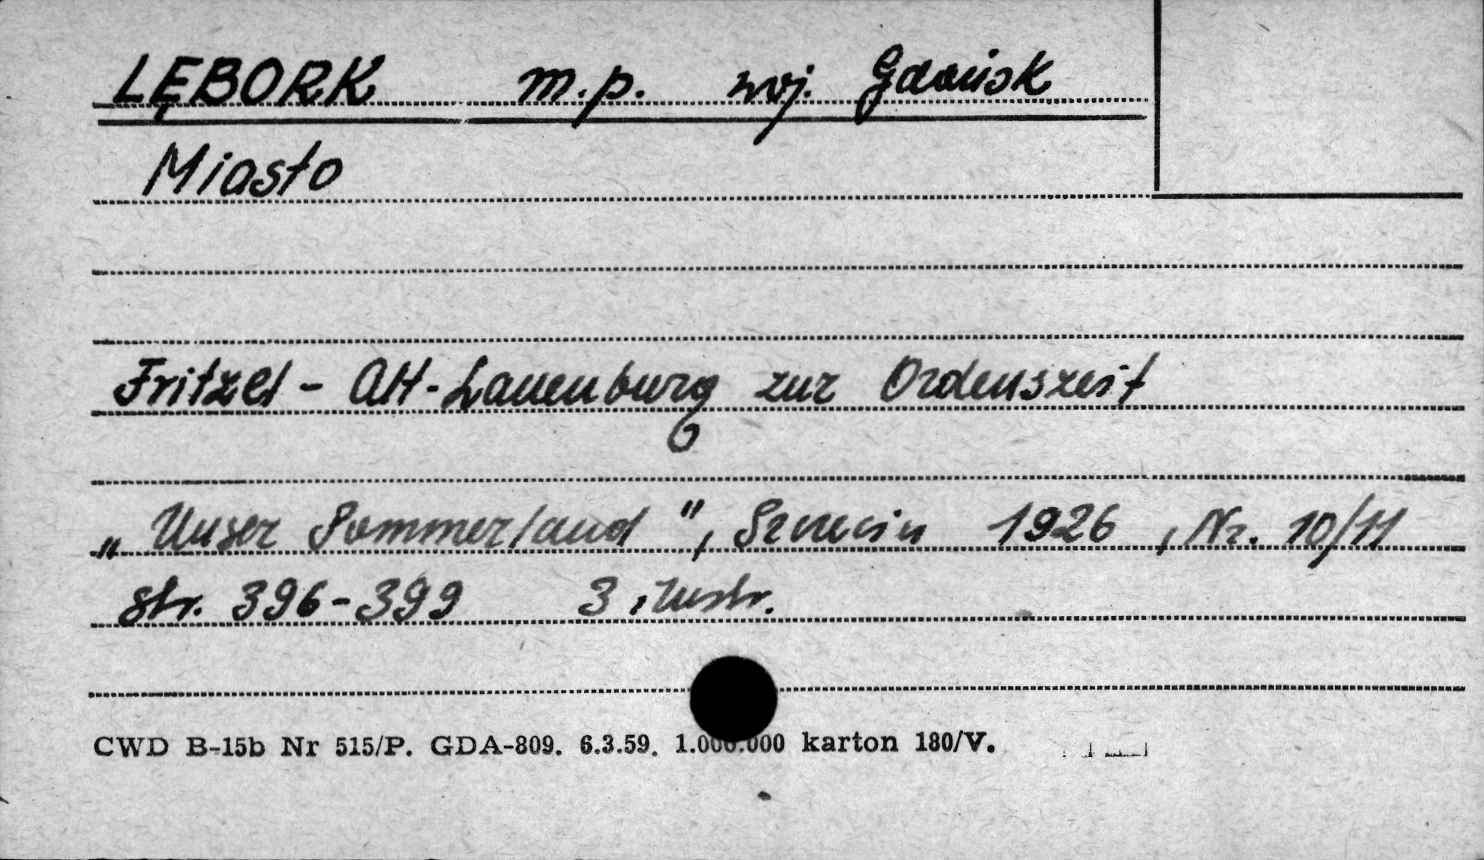 LĘBORK m.p. woj. Gdańsk
Miasto
Fritzel - Alt-Lauenburg zur Ordenszeit
„Unser Pommerland", Szczecin 1926, Nr. 10/11
str. 396-399 3 ilustr.
CWD B-15b Nr 515/P. GDA-809. 6.3.59. 1.000.000 karton 180/V.